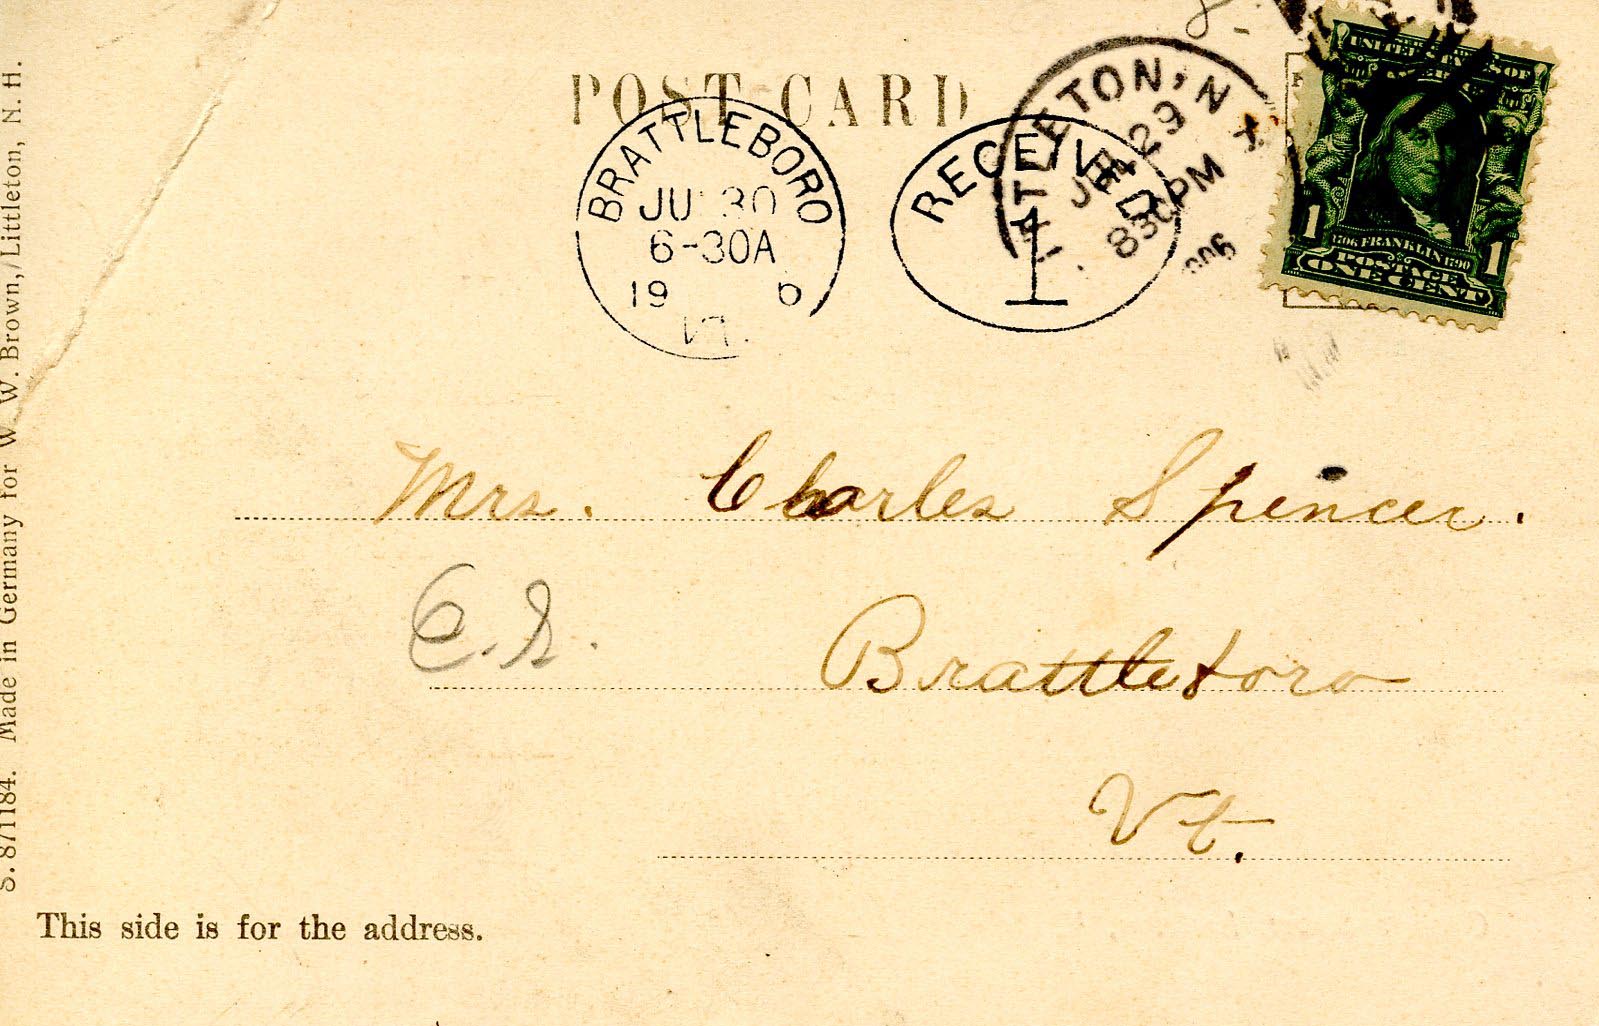 POST CARD
BRATTLEBORO
JU 30
6-30A
19 6
VT.
RECEIVED
1
LITTLETON, N
29
830PM
1906
UNITED STATES OF
1 1706 FRANKLIN 1790 1
POSTAGE
ONE CENT
Mrs. Charles Spencer.
C.S.
Brattleboro
Vt.
This side is for the address.
S. 871184. Made in Germany for W. W. Brown, Littleton, N. H.